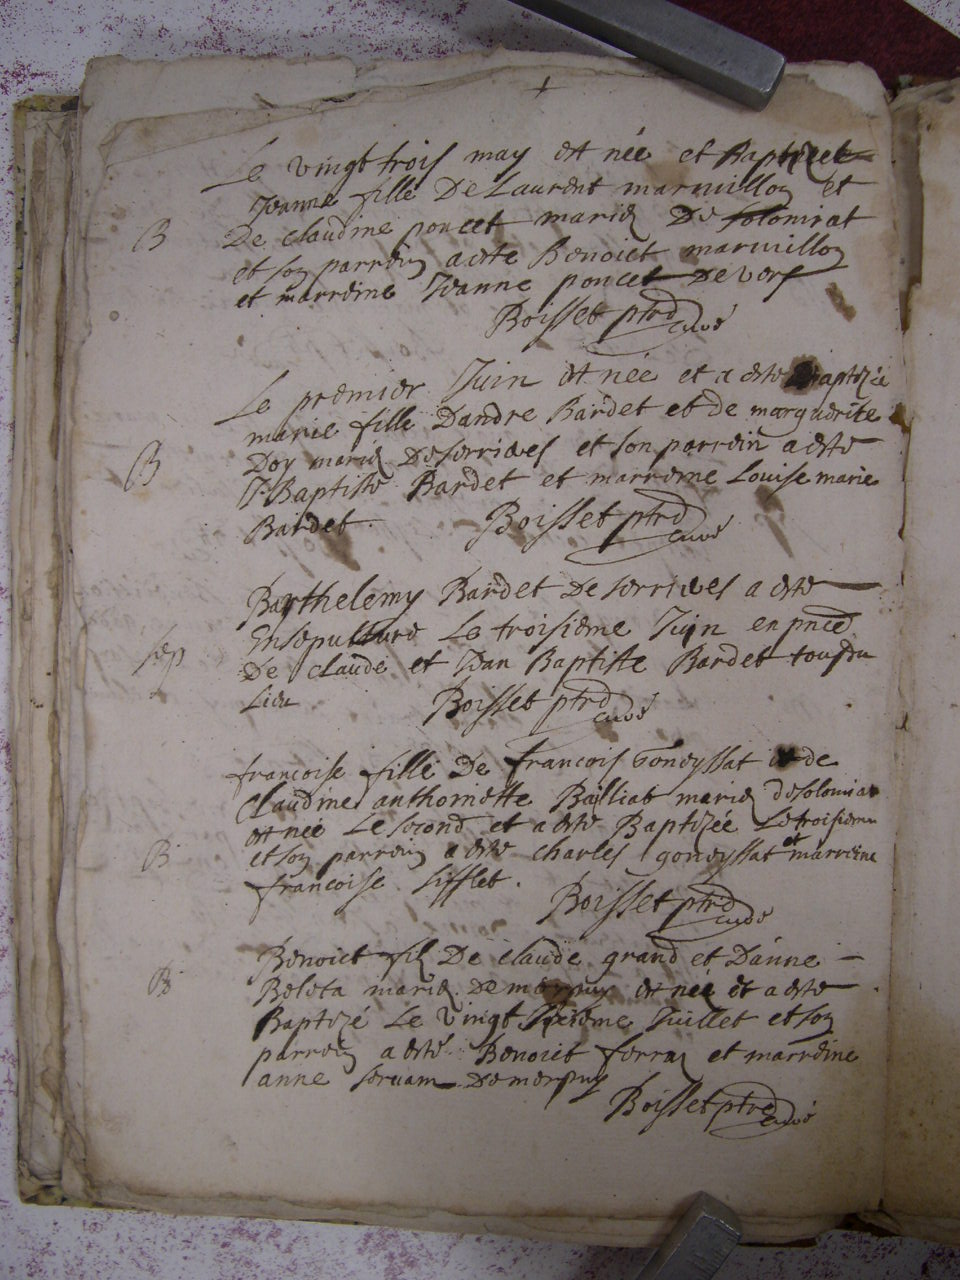 Le vingt trois may est née et Baptizée
Jeanne fille De Laurent marmillon et
B De claudine poncet mariez De solomiat
et son parrein a este Benoict marmillon
et marreine Jeanne poncet De vers
Boisset ptre curé
Le premier Juin est née et a este Baptizée
marie fille Dandre Bardet et de marguerite
B Doy mariez De serrieres et son parrein a este
J. Baptiste Bardet et marreine Louise marie
Bardet. Boisset ptre curé
Barthelemy Bardet De serrieres a este
sep Ensepulture Le troisieme Juin en pnce
De claude et Jean Baptiste Bardet tous du
Lieu Boisset ptre curé
francoise fille De francois goneyssat et de
Claudine anthoinette Bailliat mariez de solomiat
est née Le second et a este Baptizée Le troisieme
B et son parrein a este charles goneyssat et marreine
francoise sifflet. Boisset ptre curé
B Benoict filz De claude grand et Danne
Beleta mariez. De mornay est née et a este
Baptizé Le vingt Juillet et son
parrein a esté Benoict ferraz et marreine
anne servam De
Boisset ptre curé